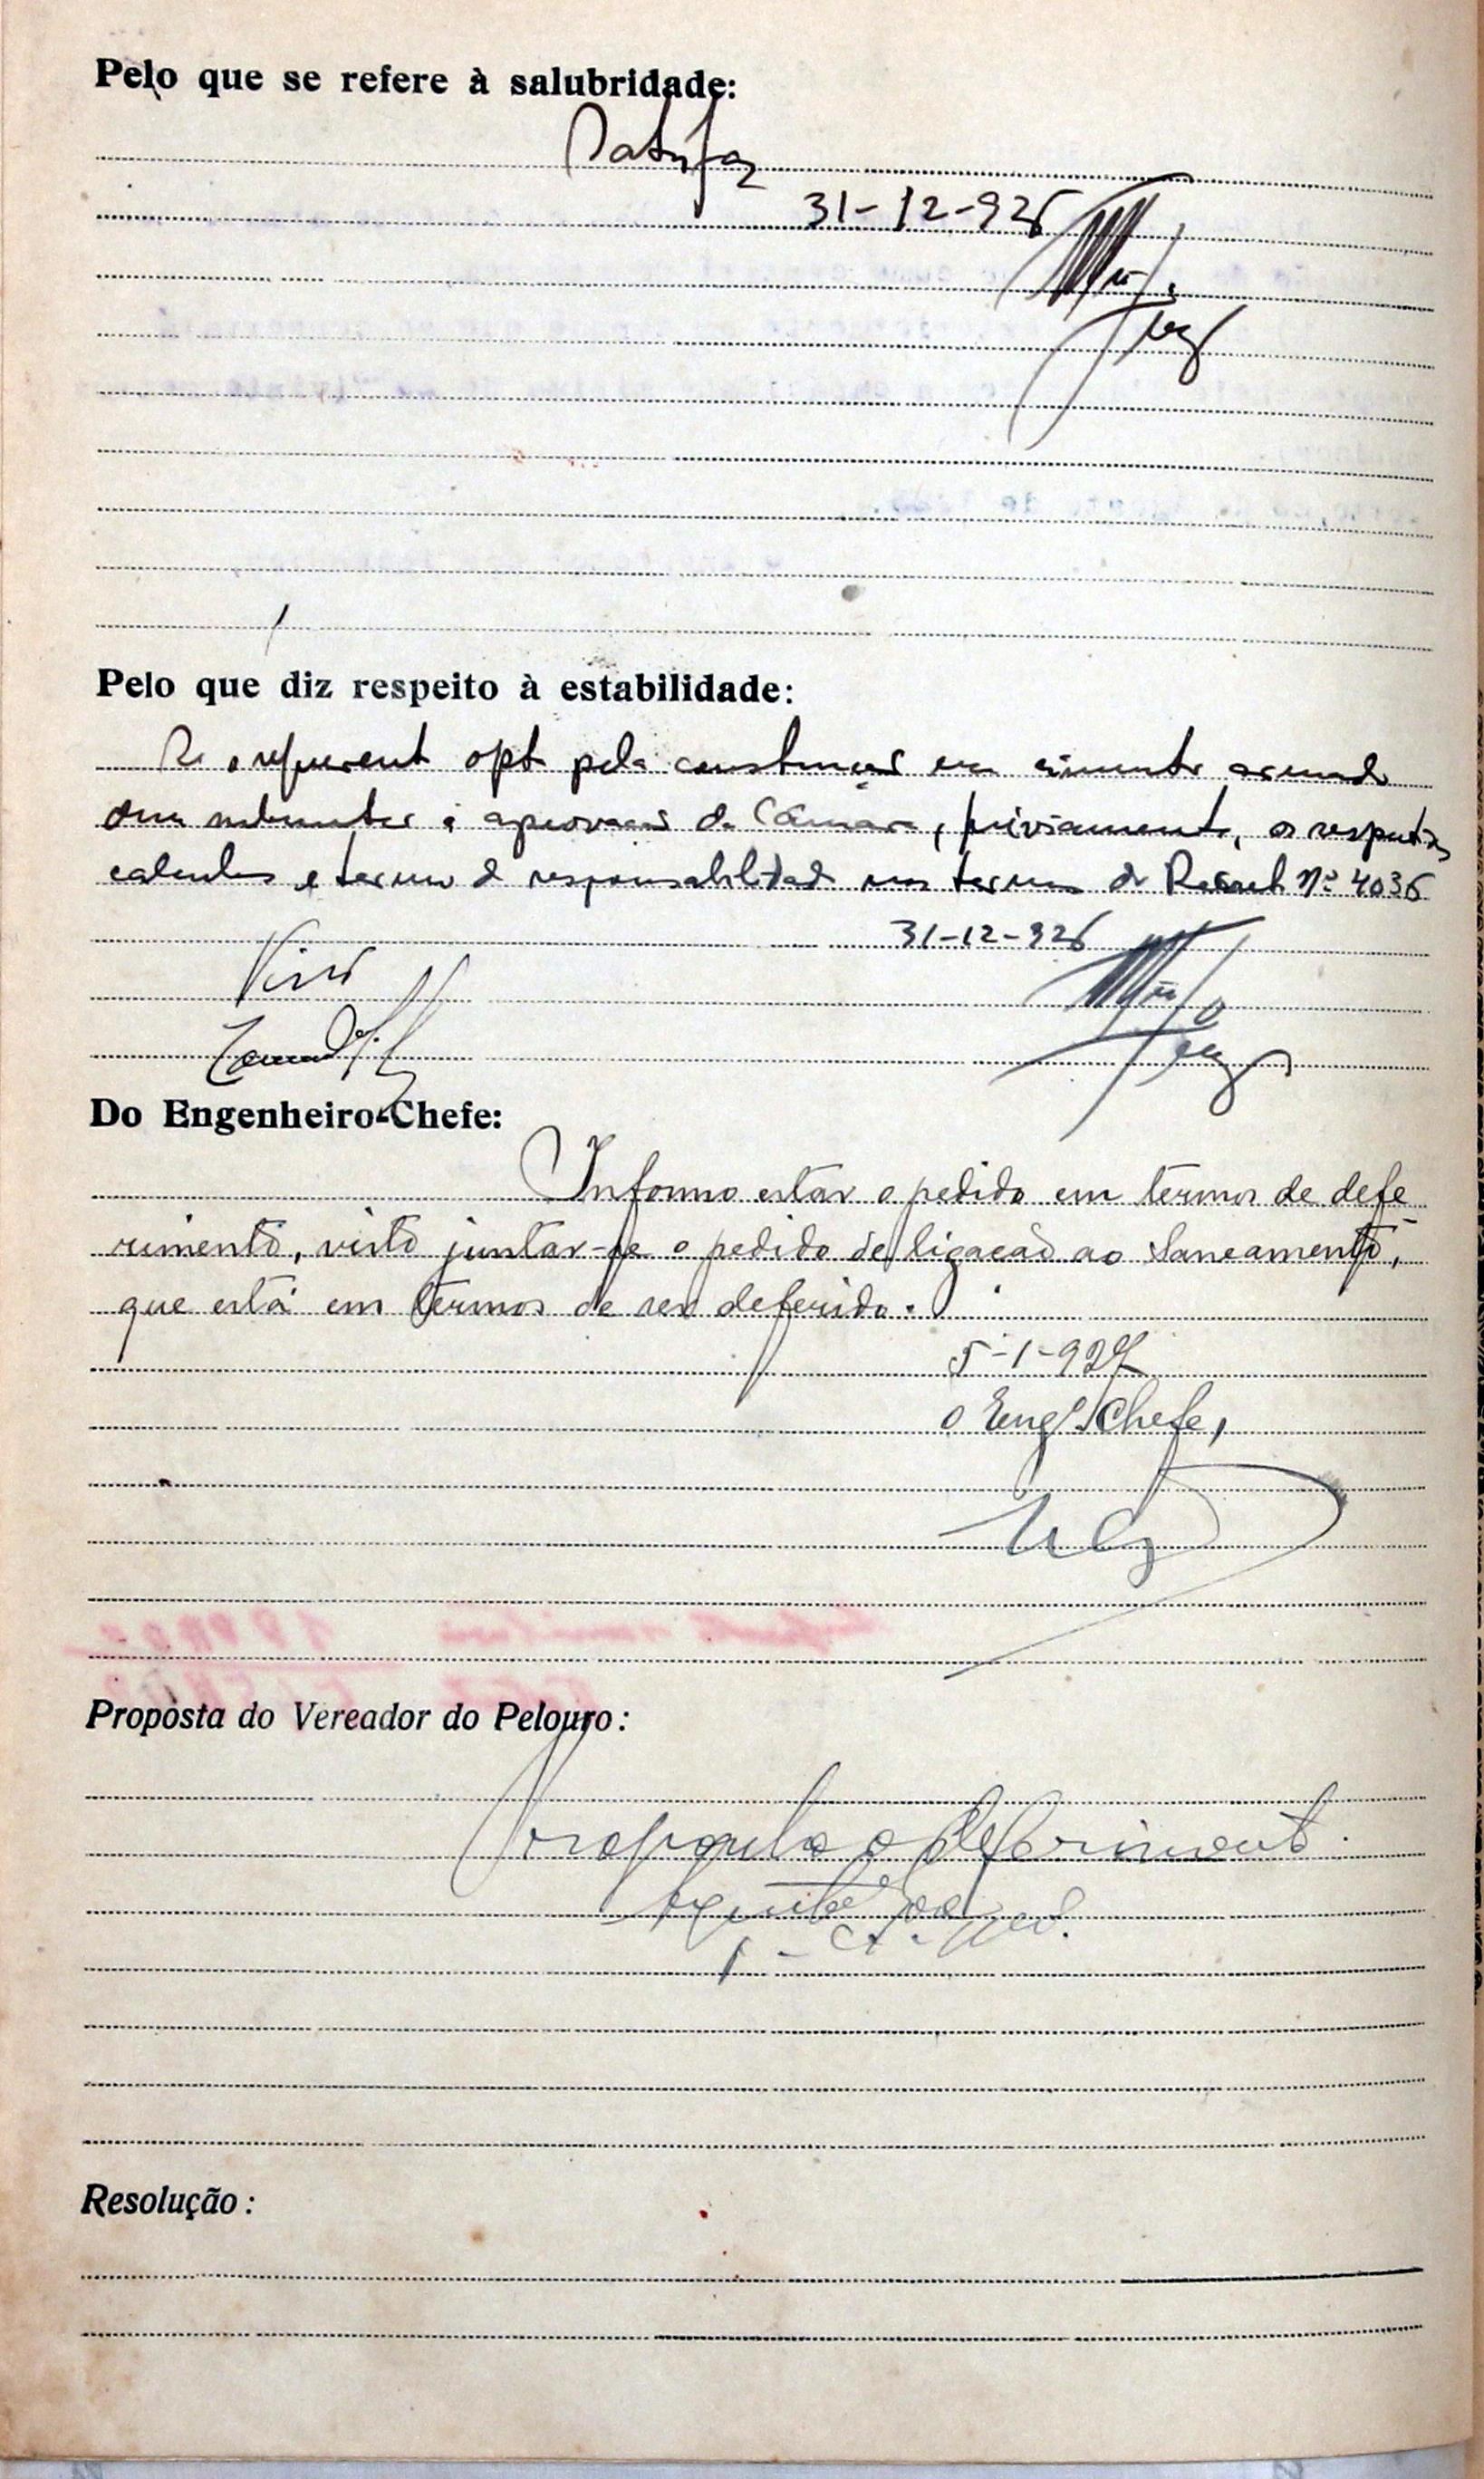 Pelo que se refere à salubridade:
Satisfaz
31-12-926
Pelo que diz respeito à estabilidade:
Se o requerent opt pela construção em cimento armado
deve submeter à aprovação da Câmara, previamente, os respectivos
calculos e termo d responsabilidad nos termos do Decret Nº 4036
31-12-926
Visto
Do Engenheiro-Chefe:
Informo estar o pedido em termos de defe
rimento, visto juntar-se o pedido de ligação ao Saneamento,
que está em termos de ser deferido.
5-1-927
O Engº. Chefe,
Proposta do Vereador do Pelouro:
Proponho o deferimento.
Resolução: